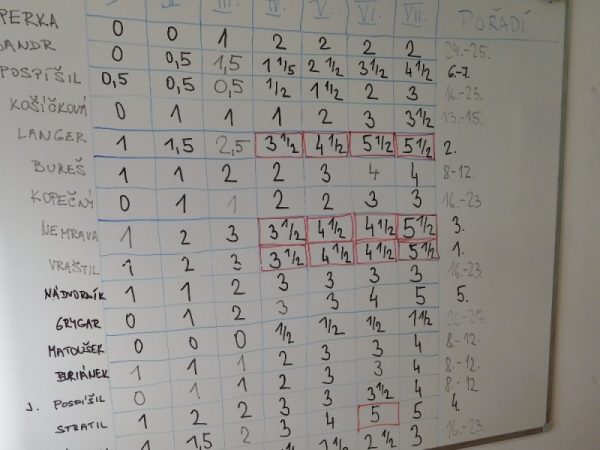 I. II. III. IV. V. VI. VII. POŘADÍ
PERKA 0 0 1 2 2 2 2 24.-25.
SANDR 0 0,5 1,5 1 1/5 2 1/2 3 1/2 4 1/2 6.-7.
POSPÍŠIL 0,5 0,5 0,5 1/2 1 1/2 2 3 16.-23.
KOŠÍČKOVÁ 0 1 1 1 2 3 3 1/2 13.-15.
LANGER 1 1,5 2,5 3 1/2 4 1/2 5 1/2 5 1/2 2.
BUREŠ 1 1 2 2 3 4 4 8-12.
KOPEČNÝ 0 1 1 2 2 3 3 16.-23
NEMRAVA 1 2 3 3 1/2 4 1/2 4 1/2 5 1/2 3.
VRAŠTIL 1 2 3 3 1/2 4 1/2 4 1/2 5 1/2 1.
NÁDVORNÍK 1 1 2 3 3 3 3 16.-23.
GRYGAR 0 1 2 3 3 4 5 5.
MATOUŠEK 0 0 0 1/2 1/2 1/2 1 1/2 26-27.
BURIÁNEK 1 1 1 2 3 3 4 8.-12.
J. POSPÍŠIL 0 1 1 2 3 3 4 8.-12.
STRATIL 1 2 2 3 3 3 1/2 4 8-12
1 1,5 2 3 4 5 5 4
2 1/2 3 16.-23.